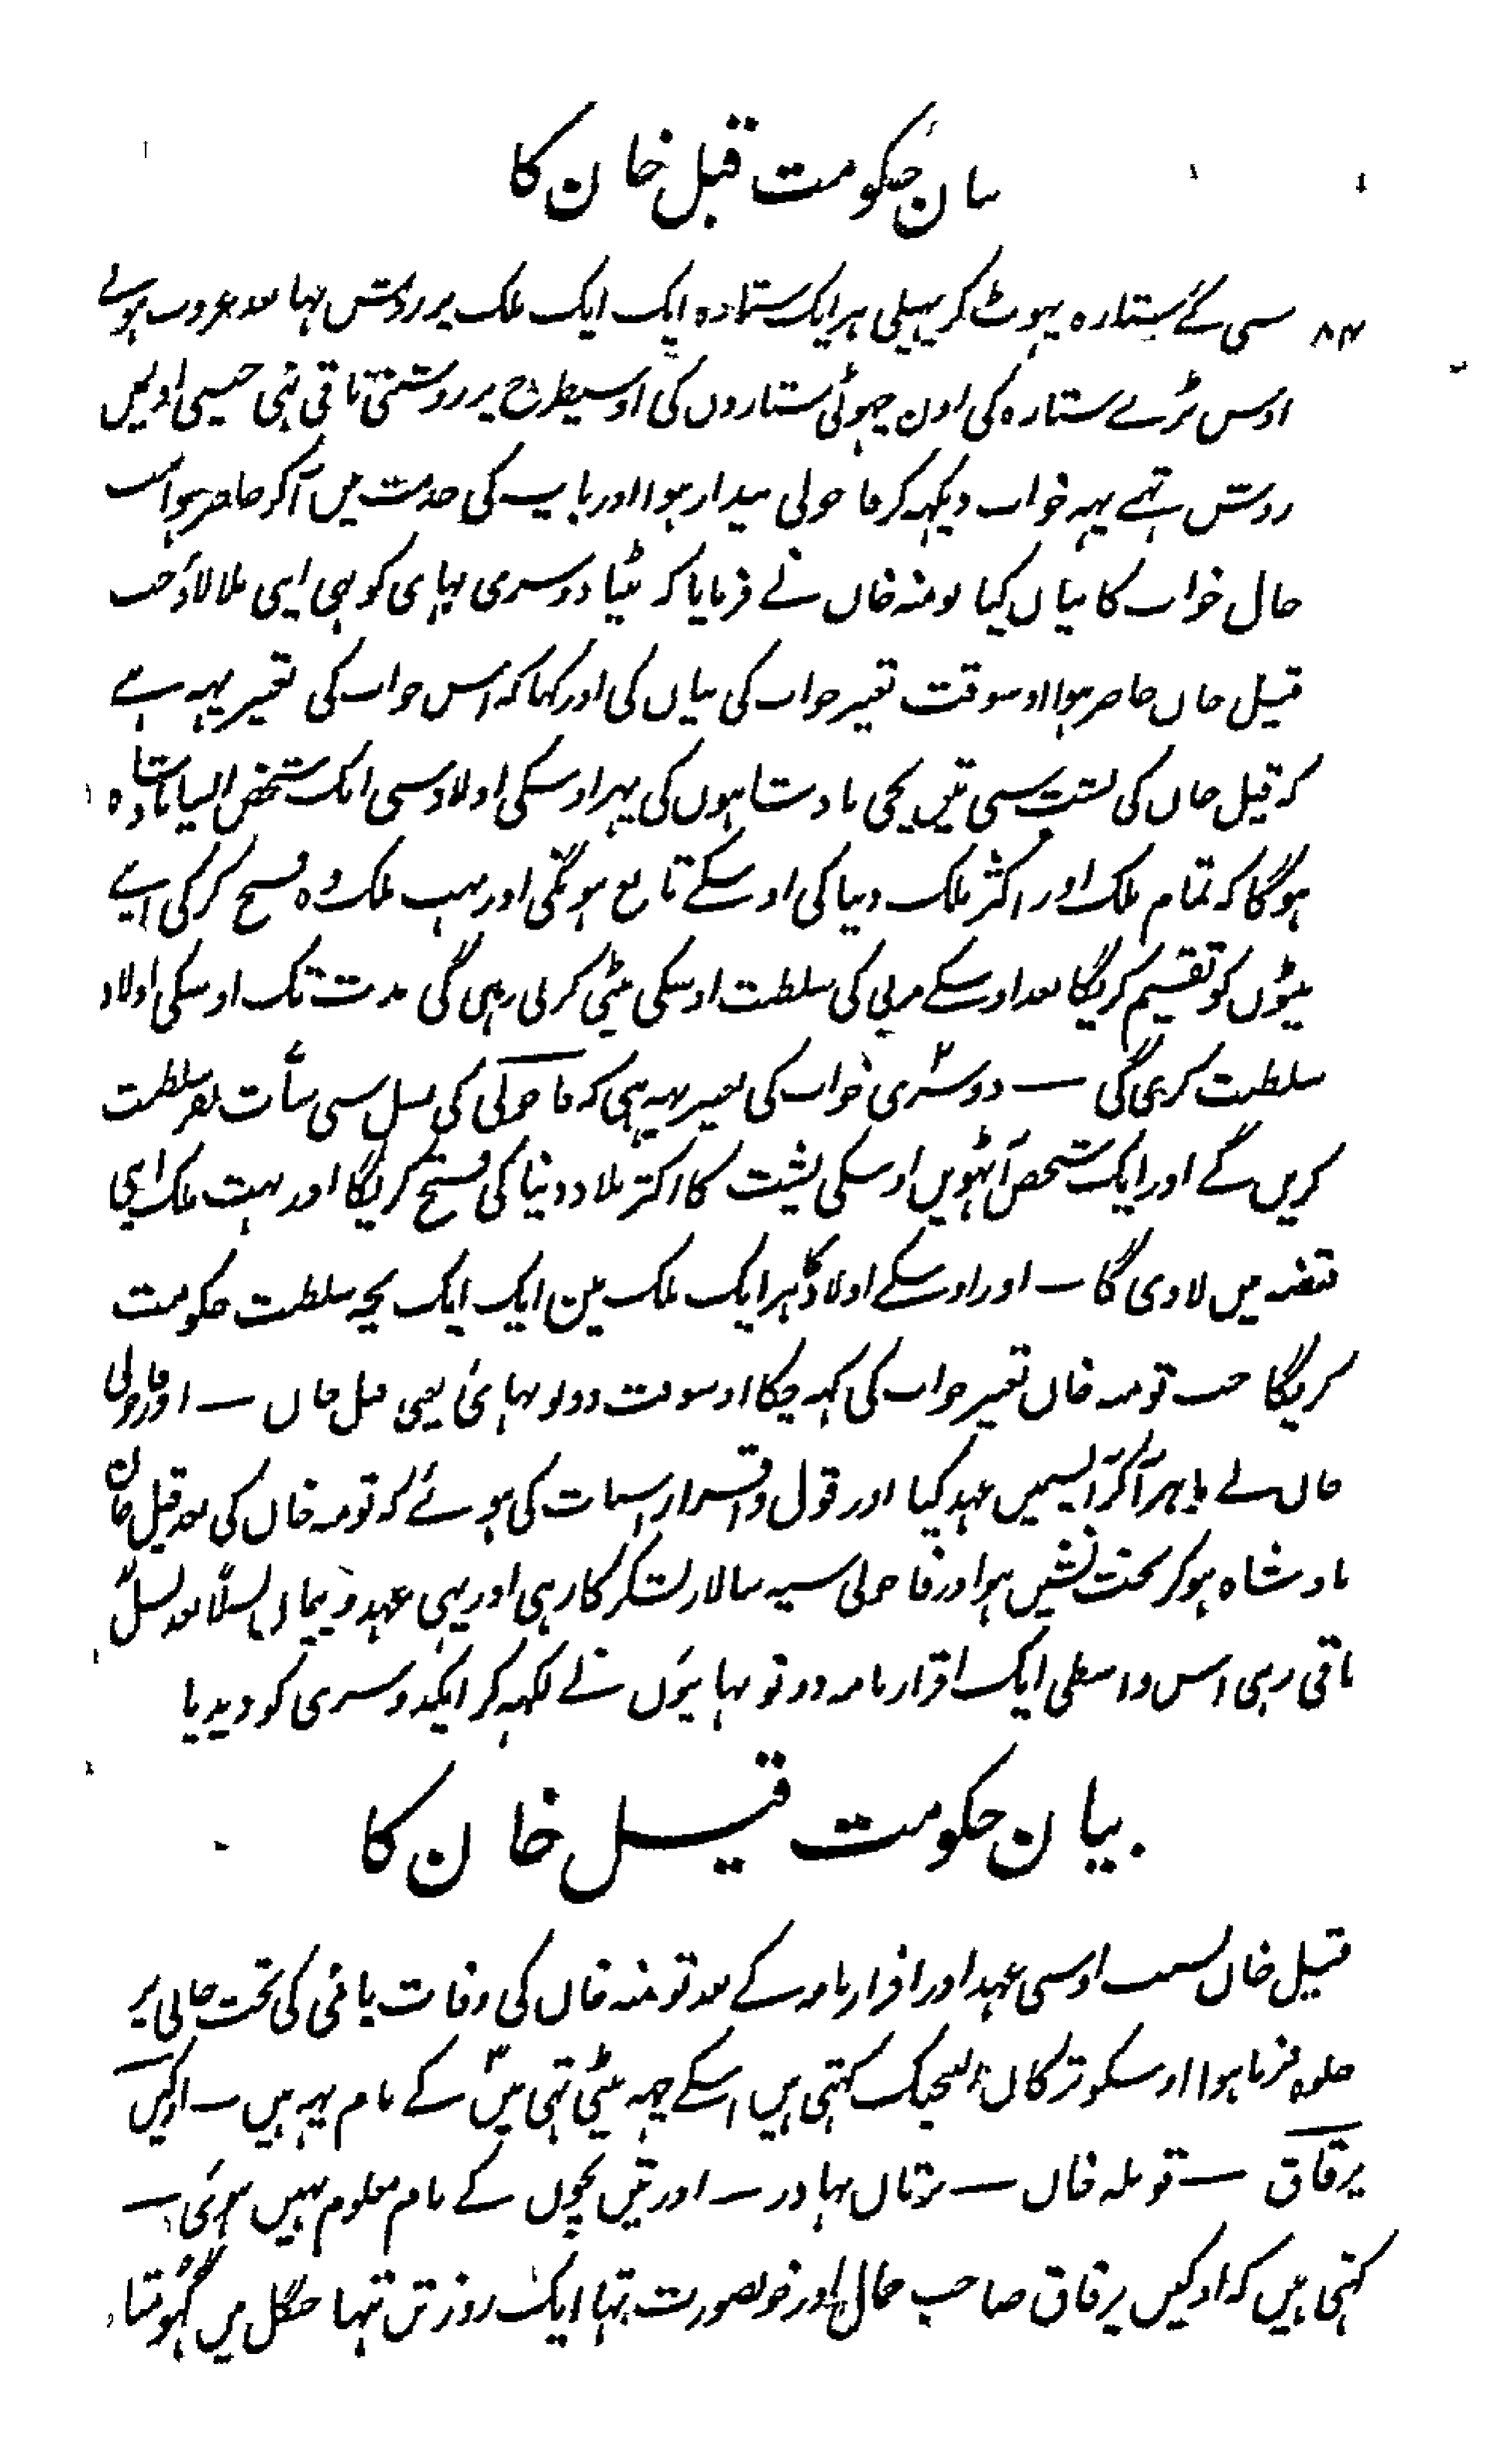 بیان حکومت قبل خان کا
سی گئے ستارہ پہوٹ کر پہیلی ہر ایک ستارہ ایک ایک ملک پر روشن تہا بعد غروب ہونے
اوس بڑے ستارہ کی اون چہوٹی ستاروں کی اوسیطرح پر روشنی باقی تہی جیسی اولیں
روشن تہے یہہ خواب دیکہہ کر قاجولی بیدار ہوا اور باپ کی خدمت میں آکر حاضر ہوا سب
حال خواب کا بیاں کیا تومنہ خاں نے فرمایا کہ بیٹا دوسری بہای کو بہی ابہی بلا لاؤ جب
قبیل خاں حاضر ہوا اوسوقت تعبیر خواب کی بیاں کی اور کہا کہ اس خواب کی تعبیر یہہ ہے
کہ قبیل خاں کی پشت سی تیں بچی بادشاہوں کی پہر اوسکی اولاد سی ایک شخص ایسا بادشاہ
ہوگا کہ تمام ملک اور اکثر ملک دنیا کی اوسکے تابع ہونگی اور بہت ملک وہ فتح کر کی اپنے
بیٹوں کو تقسیم کریگا بعد اوسکے مرنی کی سلطنت اوسکی بیٹی کرتی رہی گی مدت تک اوسکی اولاد
سلطنت کری گی — دوسری خواب کی تعبیر یہہ ہی کہ قاجولی کی نسل سی سات نفر سلطنت
کریں گے اور ایک شخص آٹہویں اوسکی پشت کا اکثر بلاد دنیا کی فتح کریگا اور بہت ملک اپنی
قبضہ میں لاوی گا — اور اوسکے اولاد ہر ایک ملک مین ایک ایک بچہ سلطنت حکومت
کریگا جب تومنہ خاں تعبیر خواب کی کہہ چکا اوسوقت دونو بہائی یعنی قبل خاں — اور قاجولی
خاں نے باہر آکر آپسمیں عہد کیا اور قول و اقرار اسبات کی ہوئے کہ تومنہ خاں کی بعد قبل خان
بادشاہ ہو کر تخت نشیں ہو اور قاجولی سپہ سالار لشکر کا رہی اور یہی عہد و پیماں نسلاً بعد نسل
باقی رہی اس واسطی ایک اقرار نامہ دونو بہایوں نے لکہہ کر ایکدوسری کو دیدیا
بیان حکومت قبیل خان کا
قبیل خاں بسبب اوسی عہد اور اقرار نامہ کے بعد تومنہ خاں کی وفات پائی کی تخت خالی پر
جلوہ فرما ہوا اوسکو ترکاں النجیک کہتی ہیں اسکے چہہ بیٹی تہی تیں کے نام یہہ ہیں — اوکیں
برقاق — قوبلہ خاں — برتاں بہادر — اور تیں بچوں کے نام معلوم نہیں ہوئی —
کہتی ہیں کہ اوکیں برقاق صاحب جمال اور خوبصورت تہا ایک روز تں تنہا جنگل میں گہومتا